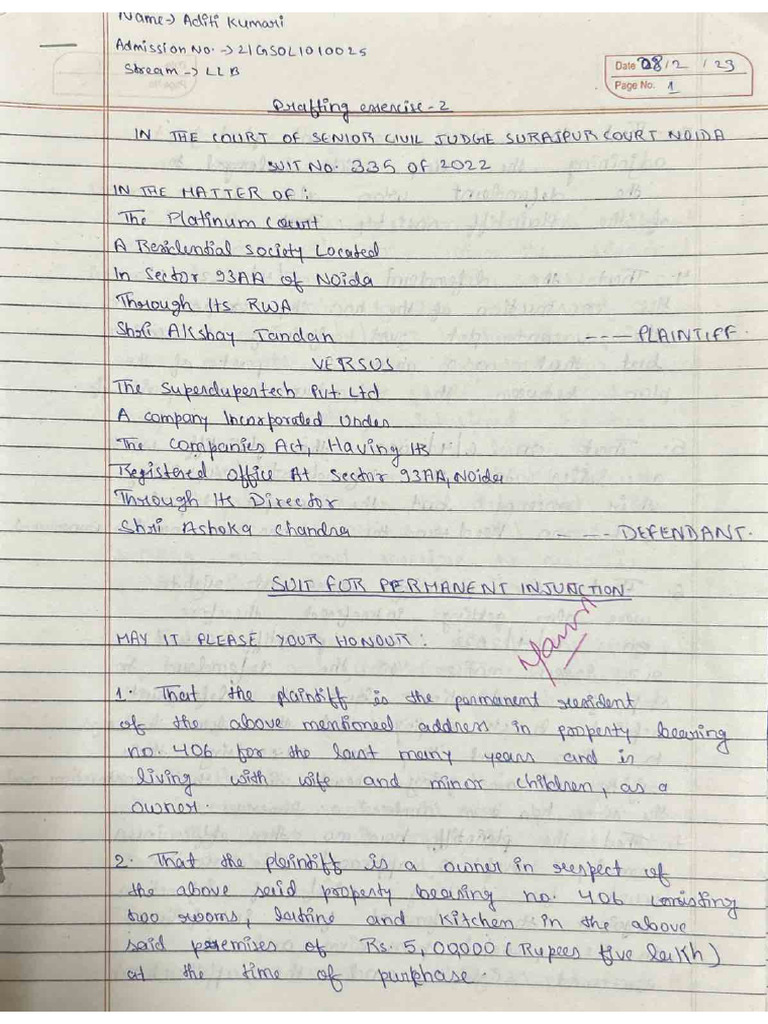 Name-> Aditi Kumari
Admission No. -> 21GSOL1010025
Stream -> LLB
Date 08/2/23
Page No. 1
Drafting exercise-2
IN THE COURT OF SENIOR CIVIL JUDGE SURAJPUR COURT NOIDA
SUIT NO. 335 OF 2022
IN THE MATTER OF:
The Platinum Court
A Residential Society Located
In Sector 93AA of Noida
Through Its RWA
Shri Akshay Tandan ---- PLAINTIFF.
VERSUS
The Superdupertech Pvt. Ltd
A company Incorporated Under
The Companies Act, Having Its
Registered Office At Sector 93AA, Noida
Through Its Director
Shri Ashoka Chandra ---- DEFENDANT.
SUIT FOR PERMANENT INJUNCTION-
MAY IT PLEASE YOUR HONOUR:
1. That the plaintiff is the permanent resident
of the above mentioned address in property bearing
no. 406 for the last many years and is
living with wife and minor children, as a
owner.
2. That the plaintiff is a owner in respect of
the above said property bearing no. 406 consisting
two rooms, latrine and kitchen in the above
said premises of Rs. 5,00,000 (Rupees five lakh)
at the time of purphase.